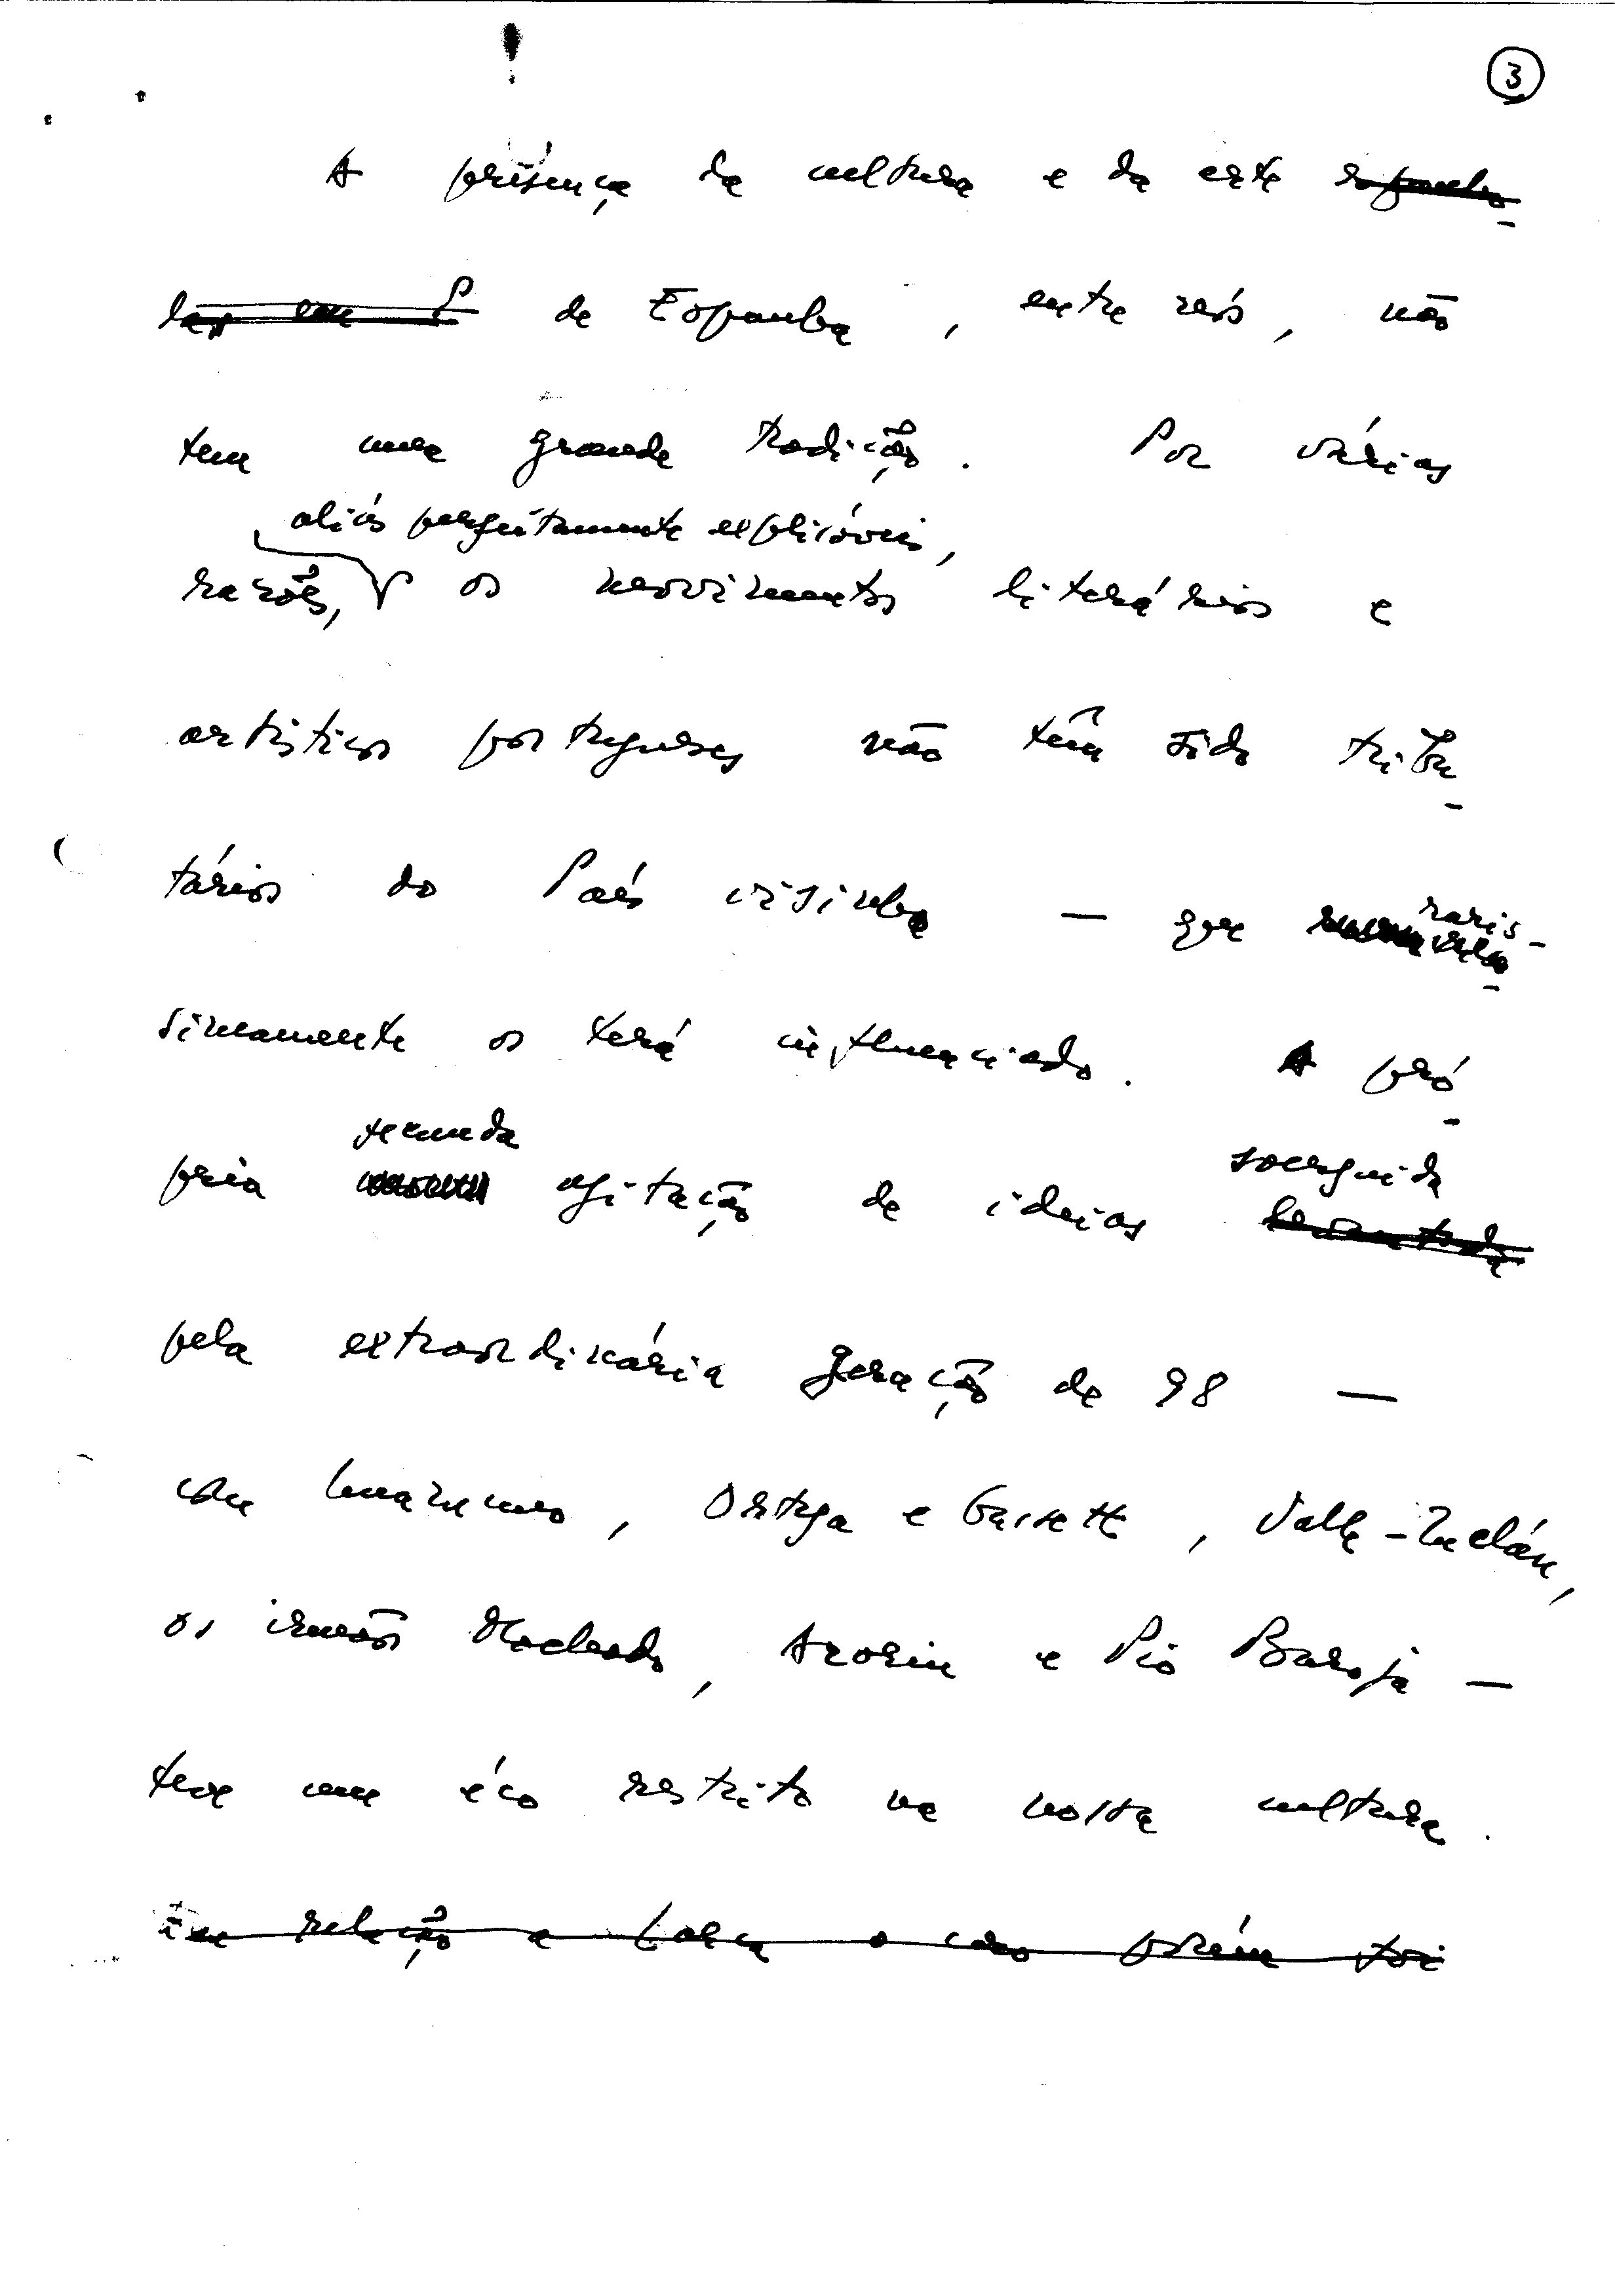 3
A presença da cultura e da arte espanho-
las em P de Espanha, entre nós, não
tem uma grande tradição. Por várias
aliás perfeitamente explicáveis,
razões, os movimentos literários e
artísticos portugueses não têm sido tribu-
tários do País visinho — que raris-
simamente os terá influenciado. A pró-
fecunda
pria agitação de ideias levantada
soerguida
pela extraordinária geração de 98 —
com Unamuno, Ortega e Gasset, Valle-Inclán,
os irmãos Machado, Azorin e Pio Baroja —
teve um éco restrito na nossa cultura.
Em relação a Lorca o caso porém foi